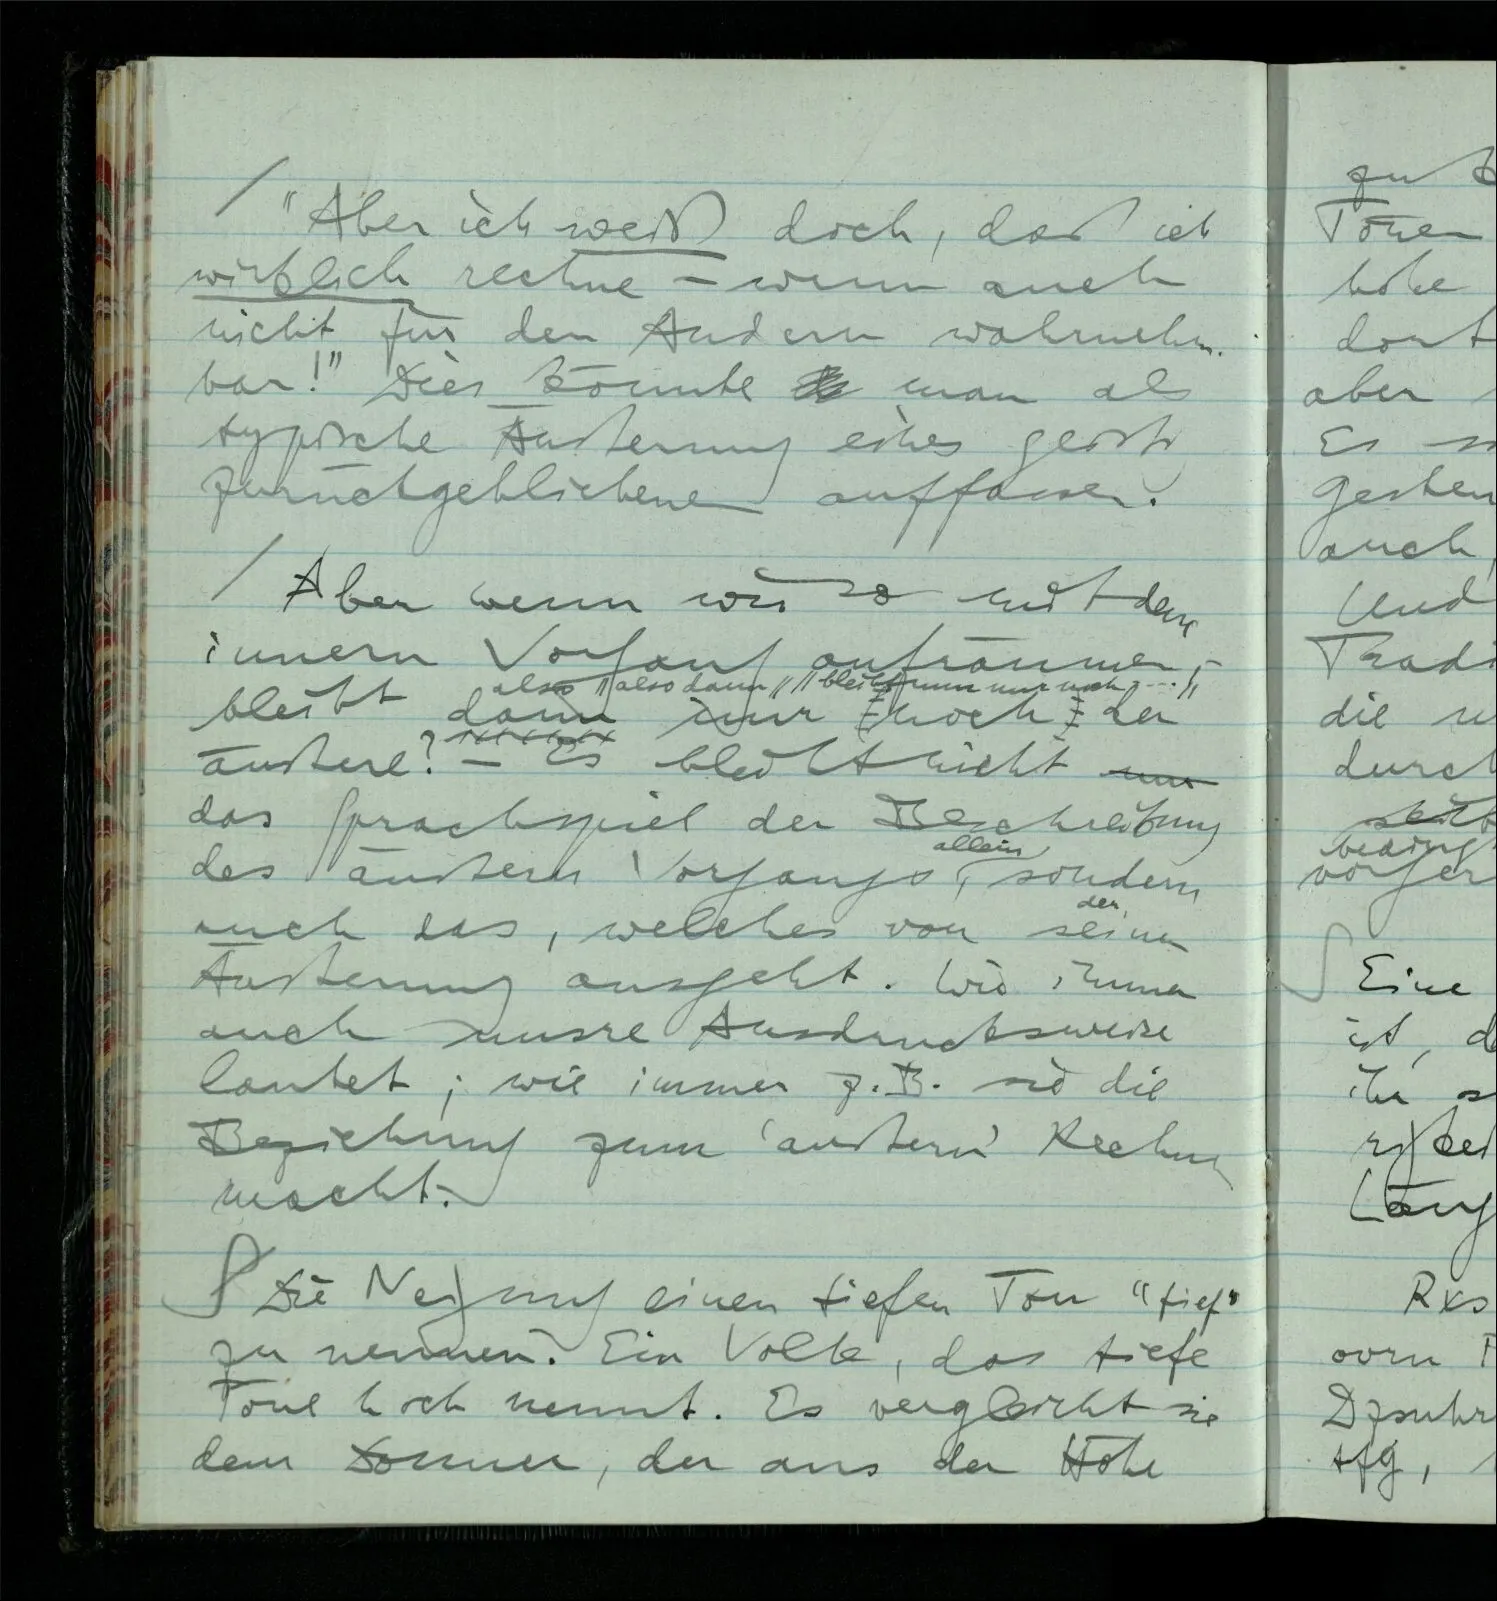 / "Aber ich weiß doch, daß ich
wirklich rechne – wenn auch
nicht für den Andern wahrnehm-
bar!" Dies könnte man als
typische Äußerung eines geistig
zurückgebliebenen auffassen.
/ Aber wenn wir so mit dem
innern Vorgang aufräumen, –
also "also dann" "bleibt nun nur noch ...."
bleibt dann nur noch der
äußere? – Es bleibt nicht nur
das Sprachspiel der Beschreibung
allein
des äußern Vorgangs, sondern
der
auch das, welches von seiner
Äußerung ausgeht. Wie immer
auch unsre Ausdrucksweise
lautet; wie immer z.B. sie die
Beziehung zum 'äußern' Rechnen
macht.
∫ Die Neigung einen tiefen Ton "tief"
zu nennen. Ein Volk, das tiefe
Töne hoch nennt. Es vergleicht sie
dem Donner, der aus der Höhe
zu
Tönen
höhe
dort
aber
Es
gestern
auch,
Und
die
durch
∫ Eine
ist, d
ihr s
Rxs
ovrn